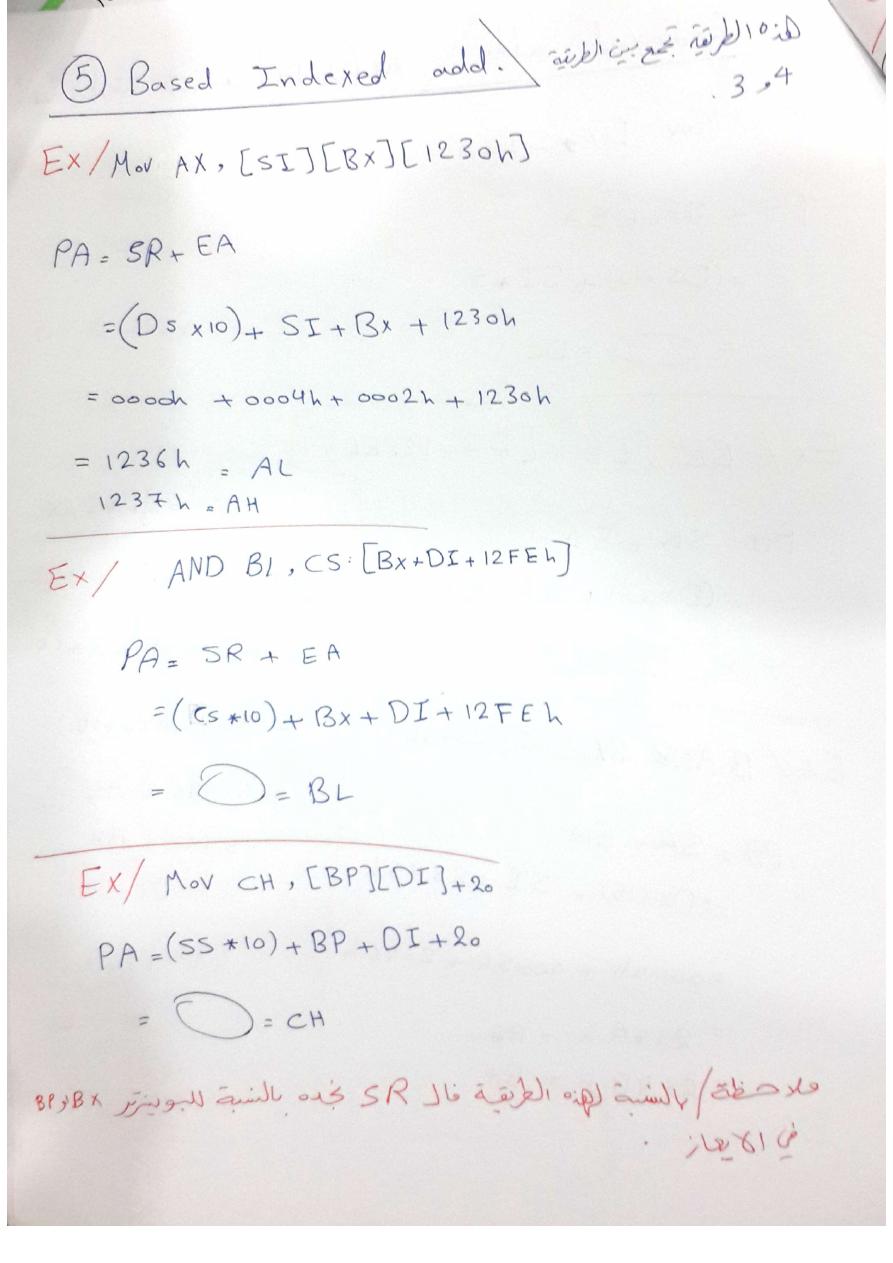 ⑤ Based Indexed add. هذه الطريقة تجمع بين الطريقة
4 و 3 .
Ex/ Mov AX, [SI][BX][1230h]
PA = SR + EA
=(DS x10)+ SI + Bx + 1230h
= 0000h + 0004h + 0002h + 1230h
= 1236h = AL
1237h = AH
Ex/ AND Bl, CS: [Bx+DI+12FEh]
PA = SR + EA
=(CS *10)+ Bx + DI + 12FEh
= = BL
Ex/ Mov CH, [BP][DI]+20
PA =(SS *10)+ BP + DI +20
= = CH
ملاحظة/ بالنسبة لهذه الطريقة فال SR نجده بالنسبة للبوينتر BX او BP
في الايعاز .